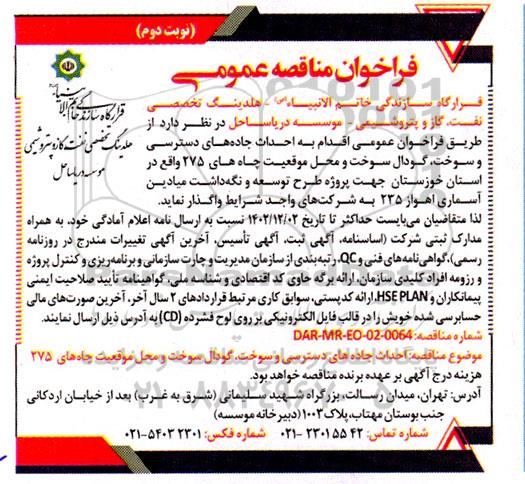 (نوبت دوم)
فراخوان مناقصه عمومی
قرارگاه سازندگی خاتم الانبیاء
هلدینگ تخصصی نفت، گاز و پتروشیمی
موسسه دریاساحل
قرارگاه سازندگی خاتم الانبیاء (ص) - هلدینگ تخصصی
نفت، گاز و پتروشیمی - موسسه دریاساحل در نظر دارد از
طریق فراخوان عمومی اقدام به احداث جاده‌های دسترسی
و سوخت، گودال سوخت و محل موقعیت چاه های ۲۷۵ واقع در
استان خوزستان جهت پروژه طرح توسعه و نگه‌داشت میادین
آسماری اهواز ۲۳۵ به شرکت‌های واجد شرایط واگذار نماید.
لذا متقاضیان می‌بایست حداکثر تا تاریخ ۱۴۰۲/۱۲/۰۲ نسبت به ارسال نامه اعلام آمادگی خود، به همراه
مدارک ثبتی شرکت (اساسنامه، آگهی ثبت، آگهی تأسیس، آخرین آگهی تغییرات مندرج در روزنامه
رسمی)، گواهی‌نامه‌های فنی و QC، رتبه‌بندی از سازمان مدیریت و چارت سازمانی و برنامه‌ریزی و کنترل پروژه
و رزومه افراد کلیدی سازمان، ارائه برگه حاوی کد اقتصادی و شناسه ملی، گواهینامه تأیید صلاحیت ایمنی
پیمانکاران و HSE PLAN، ارائه کدپستی، سوابق کاری مرتبط قراردادهای ۲ سال آخر، آخرین صورت‌های مالی
حسابرسی شده خویش را در قالب فایل الکترونیکی بر روی لوح فشرده (CD) به آدرس ذیل ارسال نمایند.
شماره مناقصه: DAR-MR-EO-02-0064
موضوع مناقصه: احداث جاده های دسترسی و سوخت، گودال سوخت و محل موقعیت چاه های ۲۷۵
هزینه درج آگهی بر عهده برنده مناقصه خواهد بود.
آدرس: تهران، میدان رسالت، بزرگراه شهید سلیمانی (شرق به غرب) بعد از خیابان اردکانی
جنب بوستان مهتاب، پلاک ۱۰۰۳ (دبیرخانه موسسه)
شماره تماس: ۴۲ ۵۵ ۲۳۰۱ -۰۲۱ شماره فکس: ۲۳۰۱ ۵۴۰۳-۰۲۱